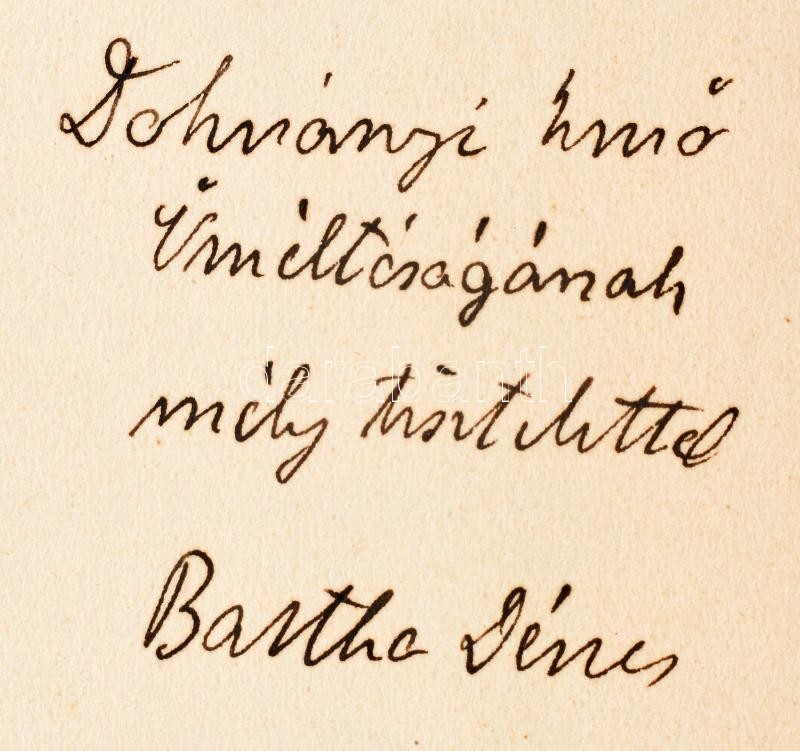 Dohnányi Ernő
Őméltóságának
darabanth
mély tisztelettel
Bartha Dénes